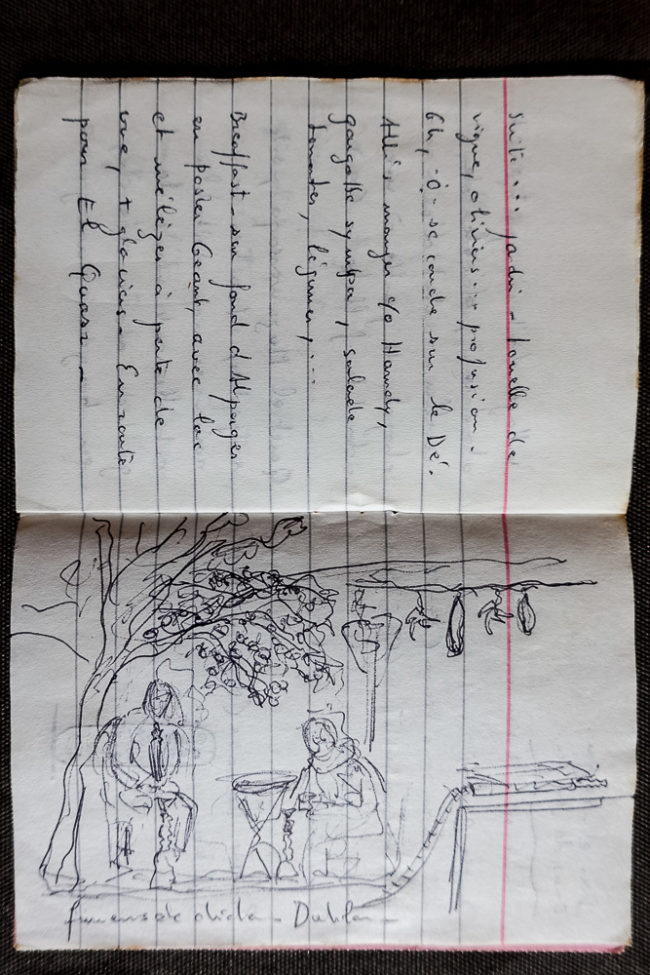 Suite ... jardin - tonelle de
vigne, oliviers ... profusion.
6h, se couche sur le Dé.
Allés manger c/o Hamdy,
gargotte sympa, salade
tomates, légumes, ...
Breakfast - sur fond d'Alpages
en poster Géant, avec lac
et mélèzes à perte de
vue, + glaciers - En route
pour El Quasr -
fumeurs de chicha - Dakhla -